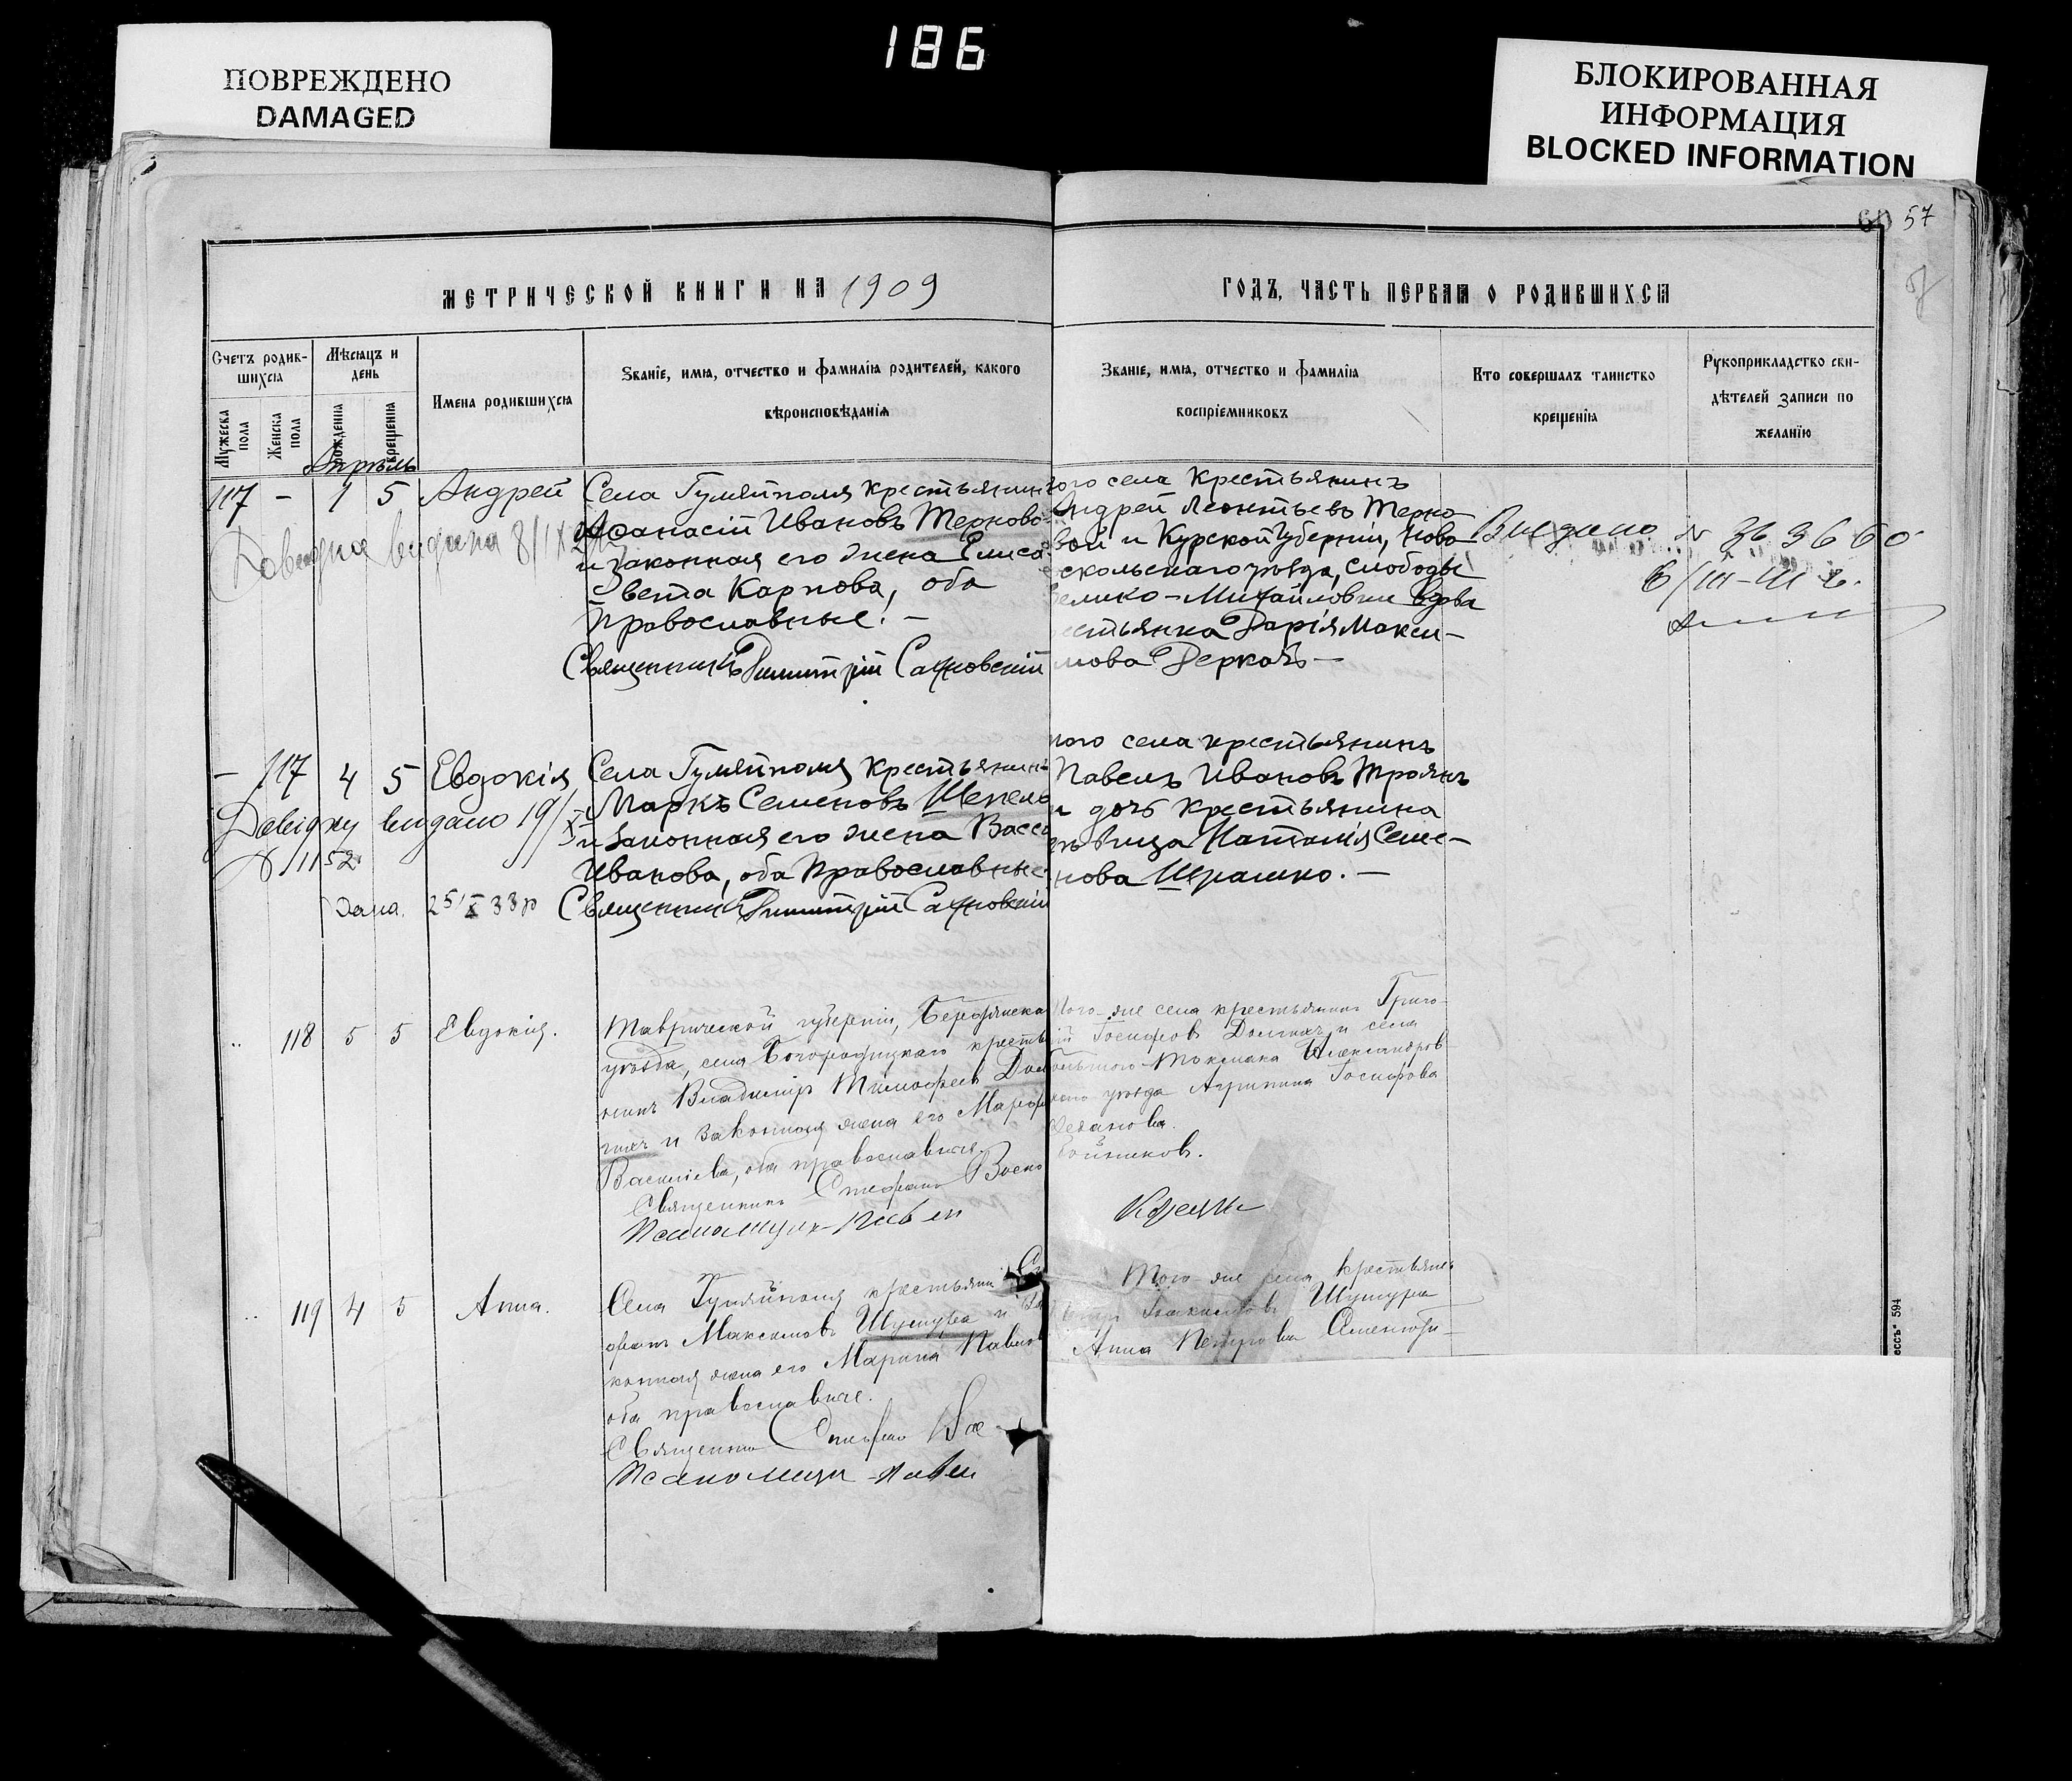 186
ПОВРЕЖДЕНО
DAMAGED
БЛОКИРОВАННАЯ
ИНФОРМАЦИЯ
BLOCKED INFORMATION
57
МЕТРИЧЕСКОЙ КНИГИ НА 1909
ГОДЪ, ЧАСТЬ ПЕРВАЯ О РОДИВШИХСЯ
Счетъ родив-
шихся
Мужеска пола
Женска пола
Мѣсяцъ и
день
рожденія
крещенія
Имена родившихся
Званіе, имя, отчество и фамилія родителей, какого
вѣроисповѣданія
Званіе, имя, отчество и фамилія
воспріемниковъ
Кто совершалъ таинство
крещенія
Рукоприкладство сви-
дѣтелей записи по
желанію
Апрѣль
117 - 1 5 Андрей
Довидна видана 8/IX
Села Гуляйполя крестьянинъ
Аѳанасій Ивановъ Терново-
и законная его жена Елиса-
вета Карпова, оба
православные. -
Священникъ Димитрій Сахновскій
того села крестьянинъ
Андрей Леонтьевъ Терно
вой и Курской губерніи, Ново
оскольскаго уѣзда, слободы
Велико-Михайловки вдова
крестьянка Дарія Макси-
мова Деркачъ -
Выдано № 363660
6/III-III г.
- 117 4 5 Евдокія
Довідку видано 19/X
№ 1152
Дана 25/X 33 р
Села Гуляйполя крестьянинъ
Маркъ Семеновъ Шепель
и законная его жена Васса
Иванова, оба православные
Священникъ Димитрій Сахновскій
того села крестьянинъ
Павелъ Ивановъ Троянъ
и дочь крестьянина
дѣвица Наталія Семе-
нова Шрамко. -
118 5 5 Евдокія.
Таврической губерніи, Бердянска
уѣзда, села Богородицкаго крестья
нинъ Владиміръ Тимофеевъ Дол
гихъ и законная жена его Марѳа
Васильева, оба православные.
Священникъ Стефанъ Воско
Псаломщик-Павел
Того-же села крестьянинъ Григо-
рій Іосифовъ Долгихъ и села
Большого Токмака Александров
скаго уѣзда Агрипина Іосифова
119 4 5 Анна.
Села Гуляйполя крестьянин Ст
ефанъ Максимовъ Шушура и За
конная жена его Марина Павлов
оба православные.
Священник Стефан Вос
Псаломщик-Павел
Того-же села крестьянин
Шушура
Анна Петрова